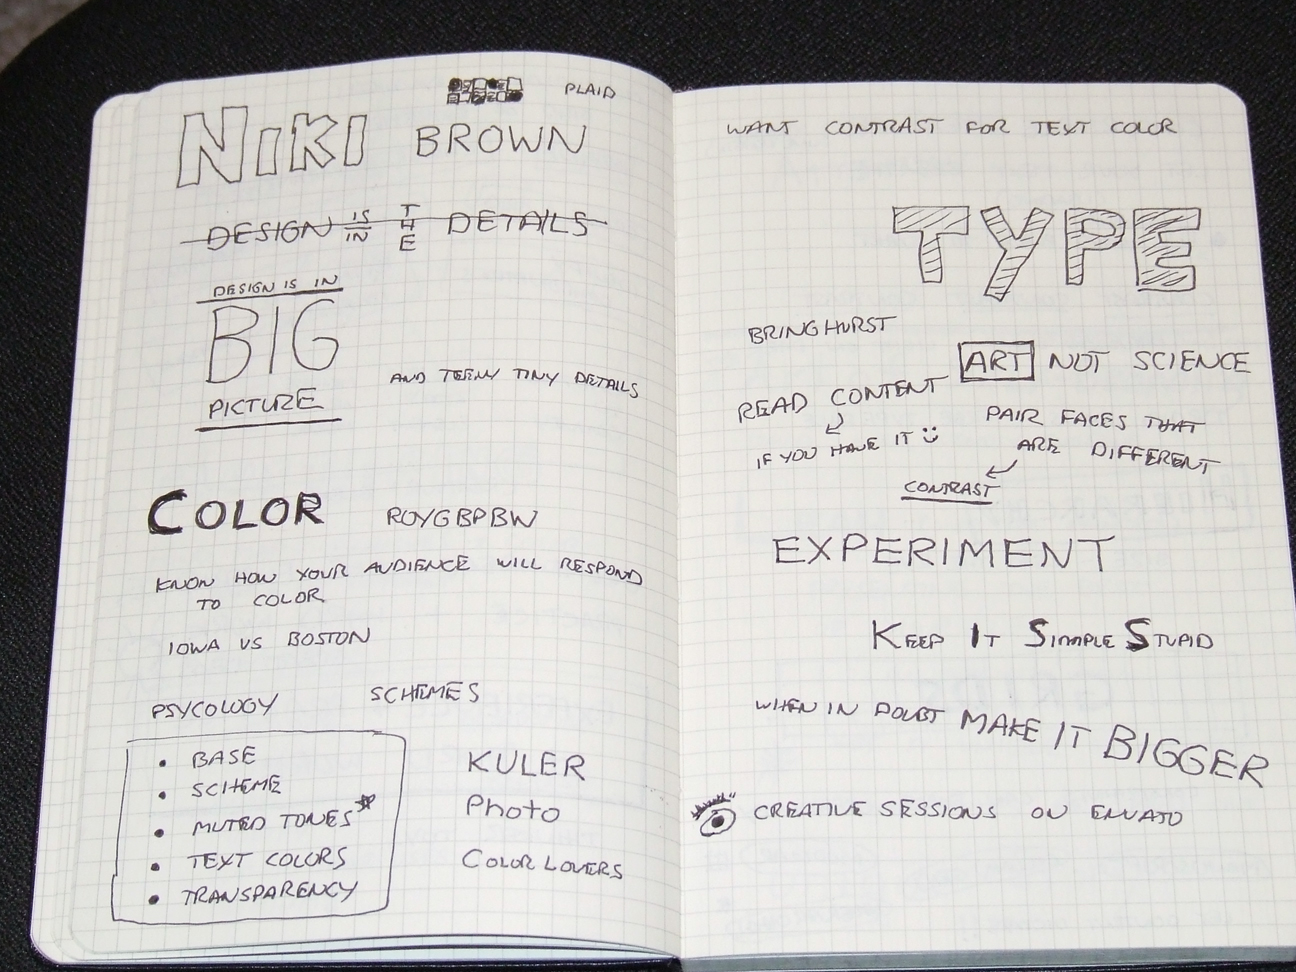 PLAID
NIKI BROWN
DESIGN IS IN THE DETAILS
DESIGN IS IN
BIG
PICTURE
AND TEENY TINY DETAILS
COLOR ROYGBPBW
KNOW HOW YOUR AUDIENCE WILL RESPOND
TO COLOR
IOWA VS BOSTON
PSYCOLOGY SCHEMES
• BASE
• SCHEME
• MUTED TONES*
• TEXT COLORS
• TRANSPARENCY
KULER
Photo
COLOR LOVERS
WANT CONTRAST FOR TEXT COLOR
TYPE
BRINGHURST
ART NOT SCIENCE
READ CONTENT
IF YOU HAVE IT
PAIR FACES THAT
ARE DIFFERENT
CONTRAST
EXPERIMENT
KEEP IT SIMPLE STUPID
WHEN IN DOUBT MAKE IT BIGGER
CREATIVE SESSIONS ON ENVATO